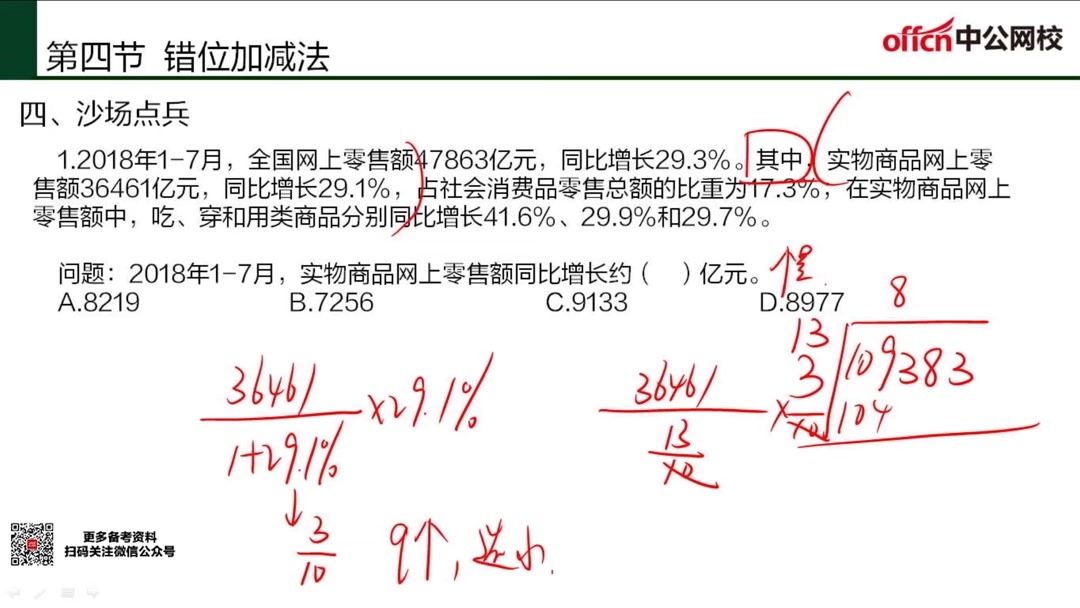 第四节 错位加减法
offcn中公网校
四、沙场点兵
1.2018年1-7月，全国网上零售额47863亿元，同比增长29.3%。其中，实物商品网上零
售额36461亿元，同比增长29.1%，占社会消费品零售总额的比重为17.3%，在实物商品网上
零售额中，吃、穿和用类商品分别同比增长41.6%、29.9%和29.7%。
问题：2018年1-7月，实物商品网上零售额同比增长约（ ）亿元。
A.8219 B.7256 C.9133 D.8977
8
36461
1+29.1%
×29.1%
3
10
36461
13
10
×
3
10
13
109383
104
q↑，选小.
更多备考资料
扫码关注微信公众号